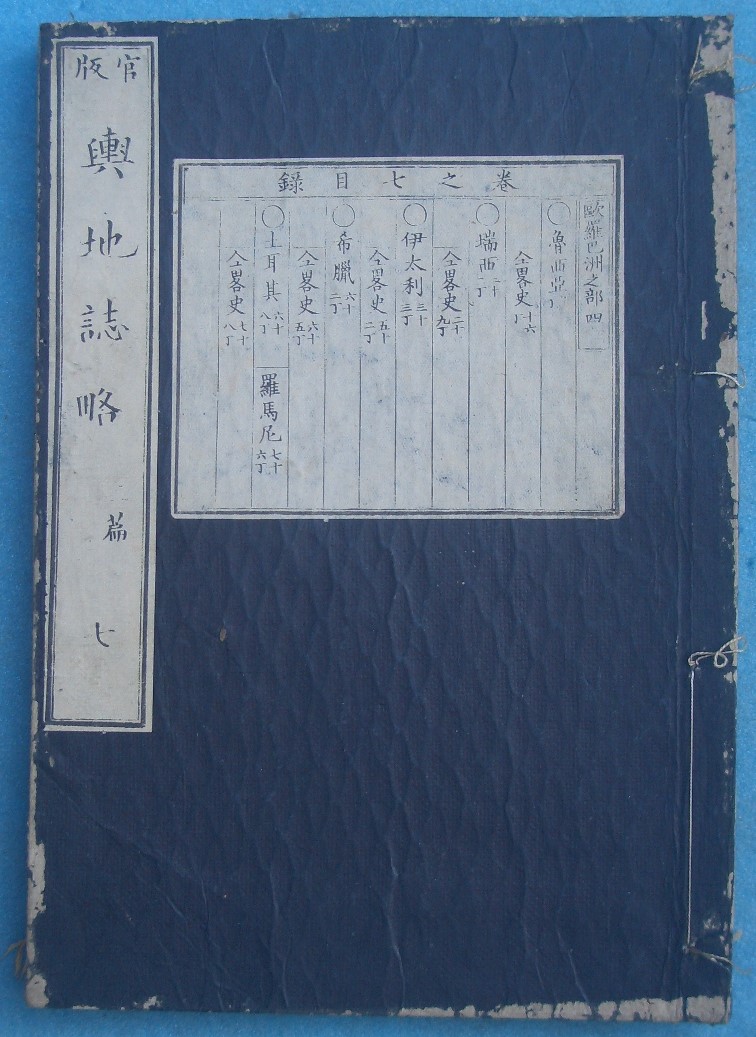 官版
輿地誌略
篇
七
卷之七目錄
歐羅巴洲之部四
○魯西亞 丁
仝畧史 十六丁
○瑞西 二十丁
仝畧史 二十九丁
○伊太利 三十三丁
仝畧史 五十二丁
○希臘 六十二丁
仝畧史 六十五丁
○土耳其 六十八丁 羅馬尼 七十六丁
仝畧史 七十八丁